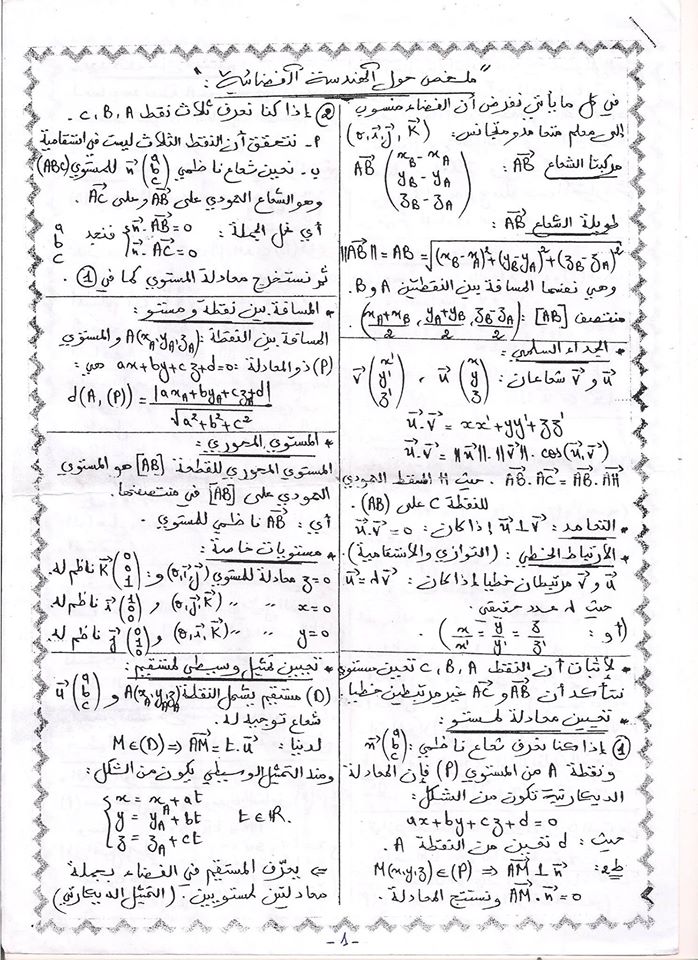 "ملخص حول الهندسة الفضائية":
في كل ما يأتي نفرض أن الفضاء منسوب
إلى معلم متعامد ومتجانس: (o, i⃗, j⃗, K⃗)
مركبتا الشعاع AB⃗: AB⃗ (x_B - x_A, y_B - y_A, z_B - z_A)
طويلة الشعاع AB⃗:
||AB⃗|| = AB = √((x_B - x_A)² + (y_B - y_A)² + (z_B - z_A)²)
وهي نفسها المسافة بين النقطتين A و B.
منتصف [AB]: ((x_A + x_B)/2, (y_A + y_B)/2, (z_B - z_A)/2).
* الجداء السلمي:
u⃗ و v⃗ شعاعان: u⃗ (x, y, z) ، v⃗ (x', y', z')
u⃗.v⃗ = xx' + yy' + zz'
u⃗.v⃗ = ||u⃗||.||v⃗||.cos(u⃗,v⃗)
AB⃗.AC⃗ = AB⃗.AH⃗ حيث H المسقط العمودي
للنقطة C على (AB).
* التعامد: u⃗ ⊥ v⃗ إذا كان: u⃗.v⃗ = 0
* الارتباط الخطي: (التوازي والاستقامية).
u⃗ و v⃗ مرتبطان خطيا إذا كان: u⃗ = d v⃗
حيث d عدد حقيقي.
(أو: x/x' = y/y' = z/z').
* لإثبات أن النقط C, B, A تعين مستوي
نتأكد أن AB⃗ و AC⃗ غير مرتبطين خطيا.
* تعيين معادلة لمستو:
① إذا كنا نعرف شعاع ناظمي: n⃗ (a, b, c)
ونقطة A من المستوي (P) فإن المعادلة
الديكارتية تكون من الشكل:
ax + by + cz + d = 0
حيث: d تعين من النقطة A.
ط2: M(x,y,z) ∈ (P) ⇒ AM⃗ ⊥ n⃗
AM⃗.n⃗ = 0 ونستنتج المعادلة.
② إذا كنا نعرف ثلاث نقط C, B, A.
أ- نتحقق أن النقط الثلاث ليست في استقامية
ب- نعين شعاع ناظمي n⃗ (a, b, c) للمستوي (ABC)
وهو الشعاع العمودي على AB⃗ وعلى AC⃗.
أي نحل الجملة: { n⃗.AB⃗ = 0 , n⃗.AC⃗ = 0 فنجد a b c
ثم نستخرج معادلة المستوي كما في ①.
* المسافة بين نقطة ومستو:
المسافة بين النقطة: A(x_A, y_A, z_A) والمستوي
(P) ذو المعادلة: ax + by + cz + d = 0 هي:
d(A, (P)) = |ax_A + by_A + cz_A + d| / √(a² + b² + c²)
* المستوي المحوري:
المستوي المحوري للقطعة [AB] هو المستوي
العمودي على [AB] في منتصفها.
أي: AB⃗ ناظمي للمستوي.
* مستويات خاصة:
z = 0 معادلة للمستوي (o, i⃗, j⃗) و: K⃗ (0, 0, 1) ناظم له.
x = 0 〃 〃 (o, j⃗, K⃗) و i⃗ (1, 0, 0) ناظم له.
y = 0 〃 〃 (o, i⃗, K⃗) و j⃗ (0, 1, 0) ناظم له.
* تعيين تمثيل وسيطي لمستقيم:
(D) مستقيم يشمل النقطة A(x_A, y_A, z_A) و u⃗ (a, b, c)
شعاع توجيه له.
لدينا: M ∈ (D) ⇒ AM⃗ = t.u⃗
ومنه التمثيل الوسيطي يكون من الشكل:
{ x = x_A + at
y = y_A + bt t ∈ ℝ.
z = z_A + ct
⇐ يعرّف المستقيم في الفضاء بجملة
معادلتين لمستويين. (التمثيل الديكارتي)
-1-